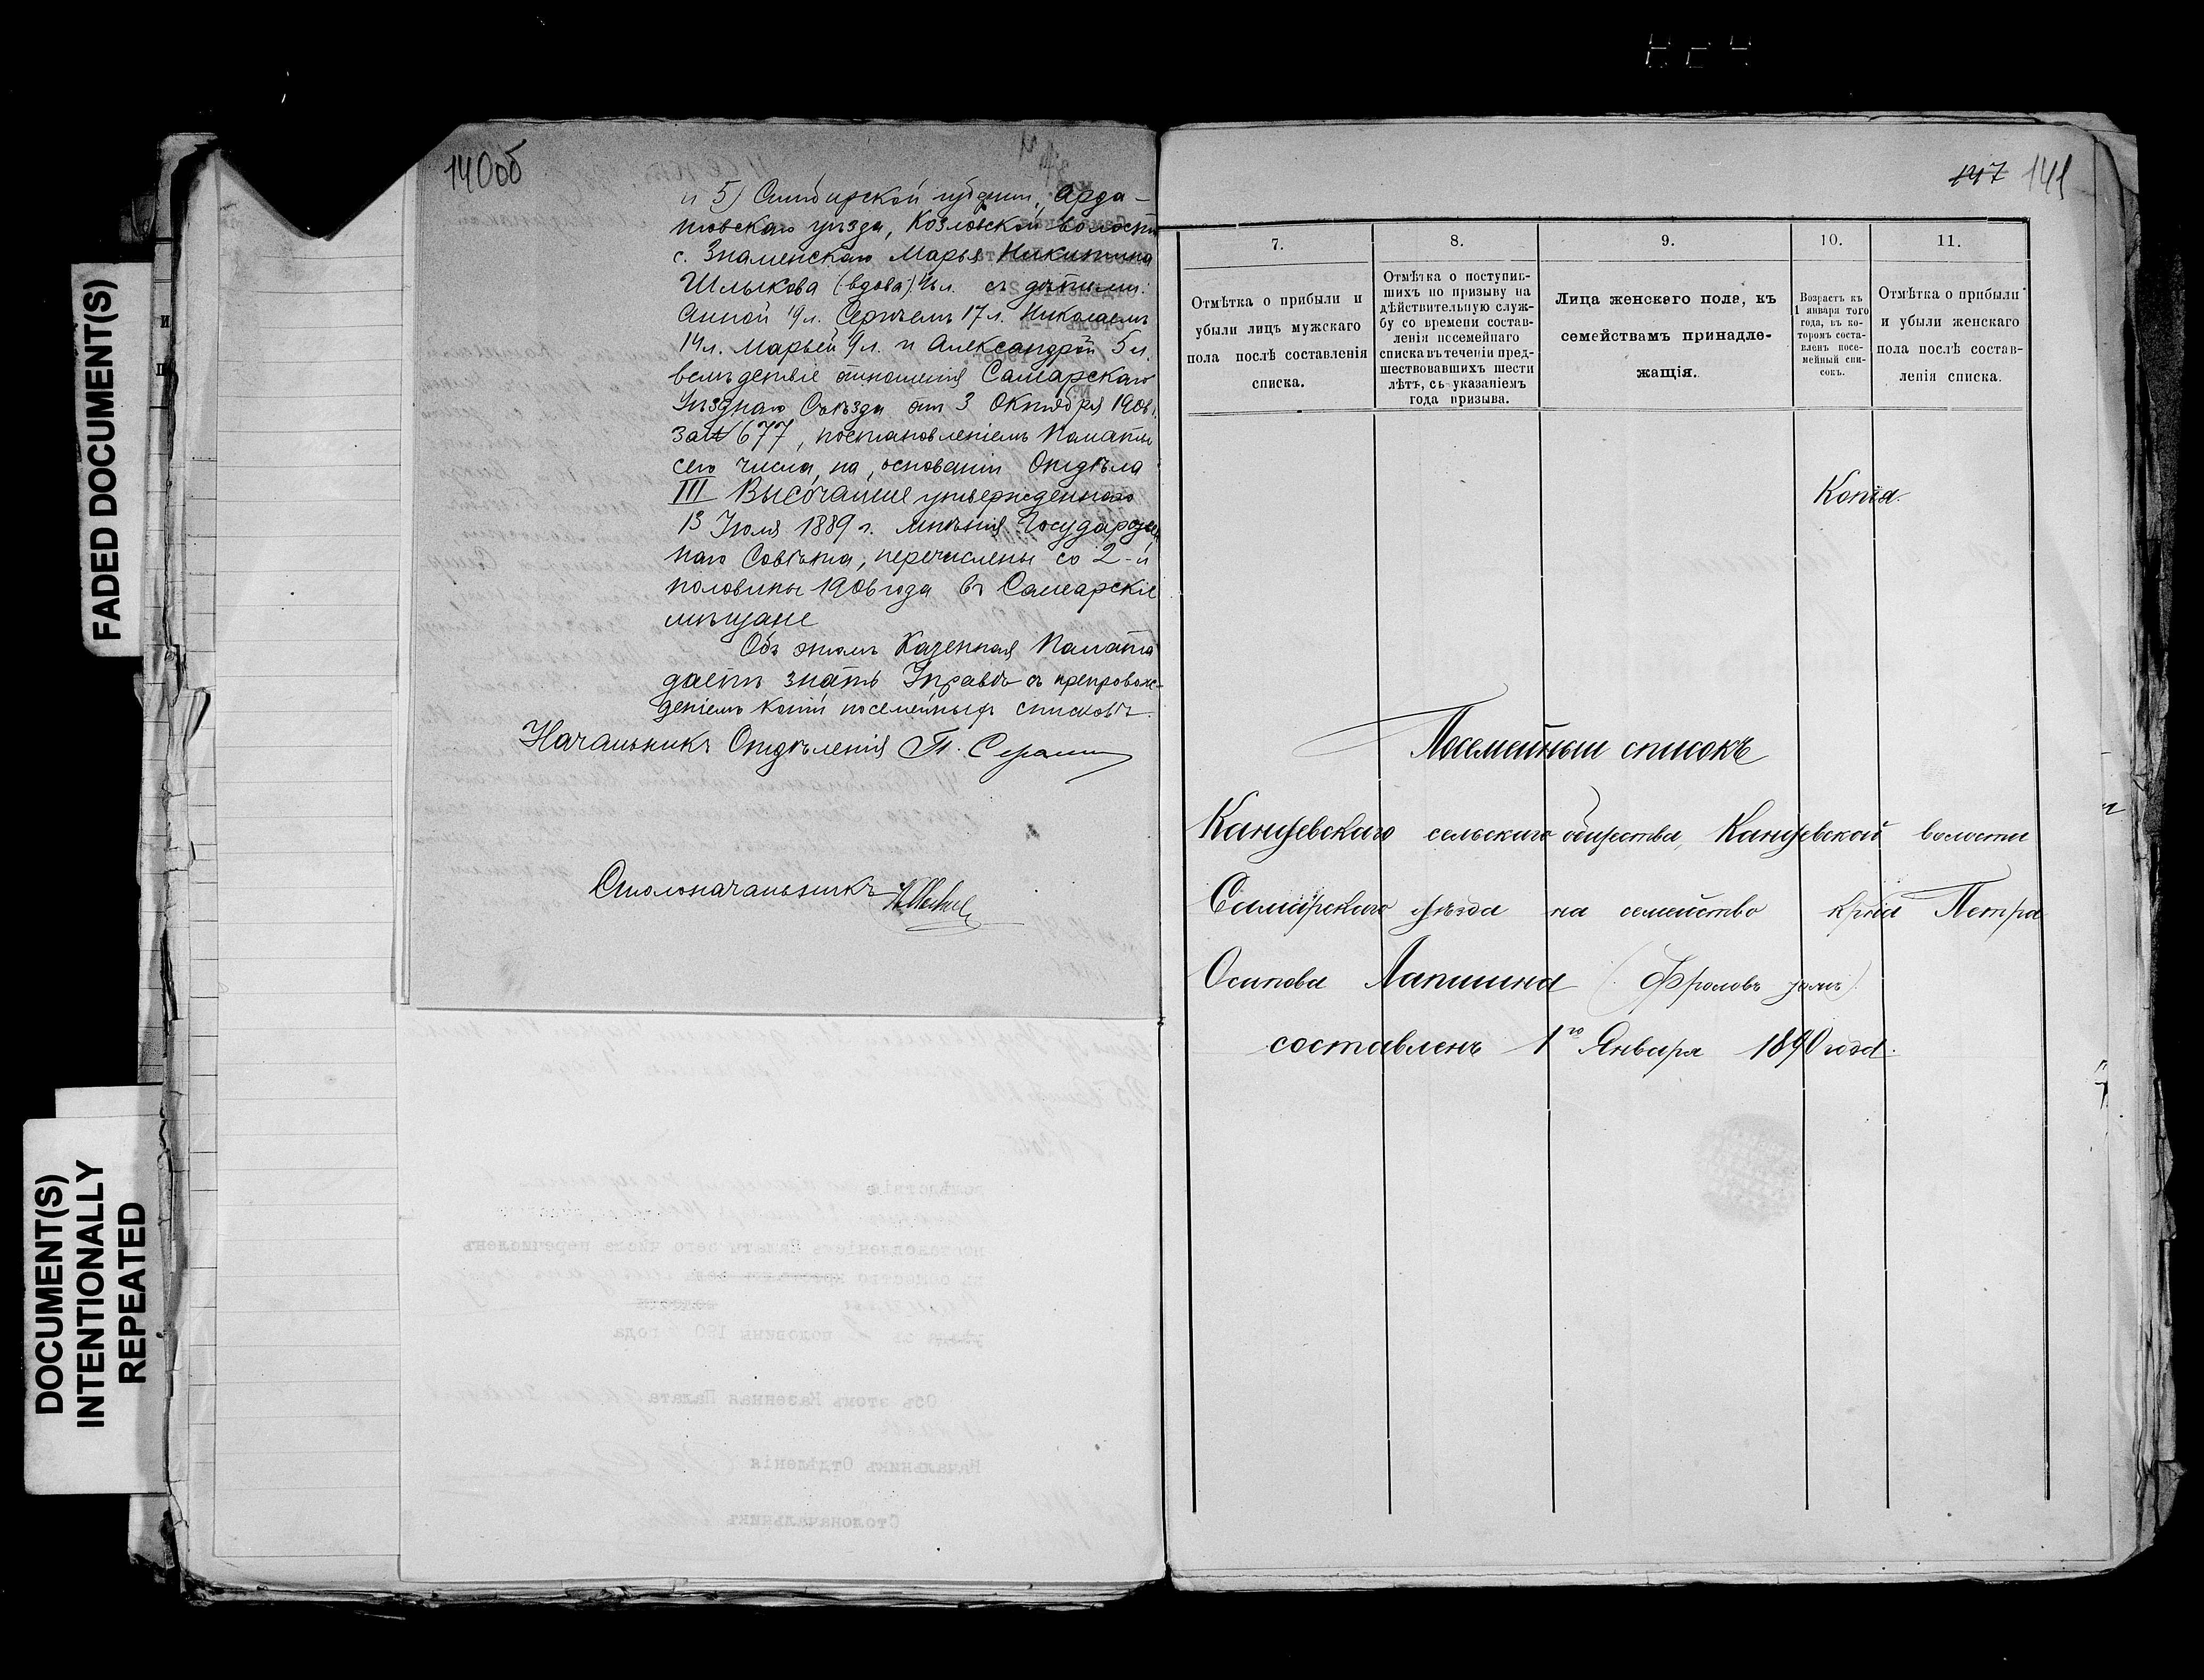 FADED DOCUMENT(S)
DOCUMENT(S)
INTENTIONALLY
REPEATED
140об
и 5) Симбирской губерніи, Арда-
товскаго уѣзда, Козловской волости
с. Знаменскаго Марья Никитина
Шлыкова (вдова) л. съ дѣтьми:
Анной 19 л. Сергѣемъ 17 л. Николаемъ
14 л. Марьей 9 л. и Александрой 5 л.
вслѣдствіе отношенія Самарскаго
Уѣзднаго Съѣзда отъ 3 Октября 1906 г.
за № 677, постановленіемъ Палаты
сего числа, на основаніи Отдѣла
III Высочайше утвержденнаго
13 Іюля 1889 г. мнѣнія Государствен
наго Совѣта, перечислены со 2-й
половины 1906 года въ Самарскіе
мѣщане
Объ этомъ Казенная Палата
даетъ знать Управѣ съ препровож-
деніемъ копіи посемейныхъ списковъ.
Начальникъ Отдѣленія П.
Столоначальникъ
147 141
7.
8.
9.
10.
11.
Отмѣтка о прибыли и
убыли лицъ мужскаго
пола послѣ составленія
списка.
Отмѣтка о поступив-
шихъ по призыву на
дѣйствительную служ-
бу со времени состав-
ленія посемейнаго
списка въ теченіи пред-
шествовавшихъ шести
лѣтъ, съ указаніемъ
года призыва.
Лица женскаго пола, къ
семействамъ принадле-
жащія.
Возрастъ къ
1 января того
года, въ ко-
торомъ соста-
вленъ посе-
мейный спи-
сокъ.
Отмѣтка о прибыли
и убыли женскаго
пола послѣ состав-
ленія списка.
Копія.
Посемейный списокъ
Кануевскаго сельскаго общества, Кануевской волости
Самарскаго уѣзда на семейство кр-на Петра
Осипова Лапшина (Фроловъ онъ же)
составленъ 1го Января 1890 года.